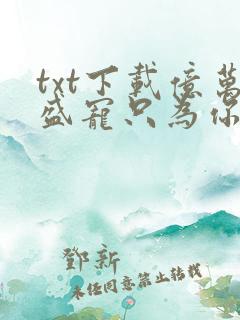 txt下載億萬
盛寵只為你
鄧新
未任同意禁止转载